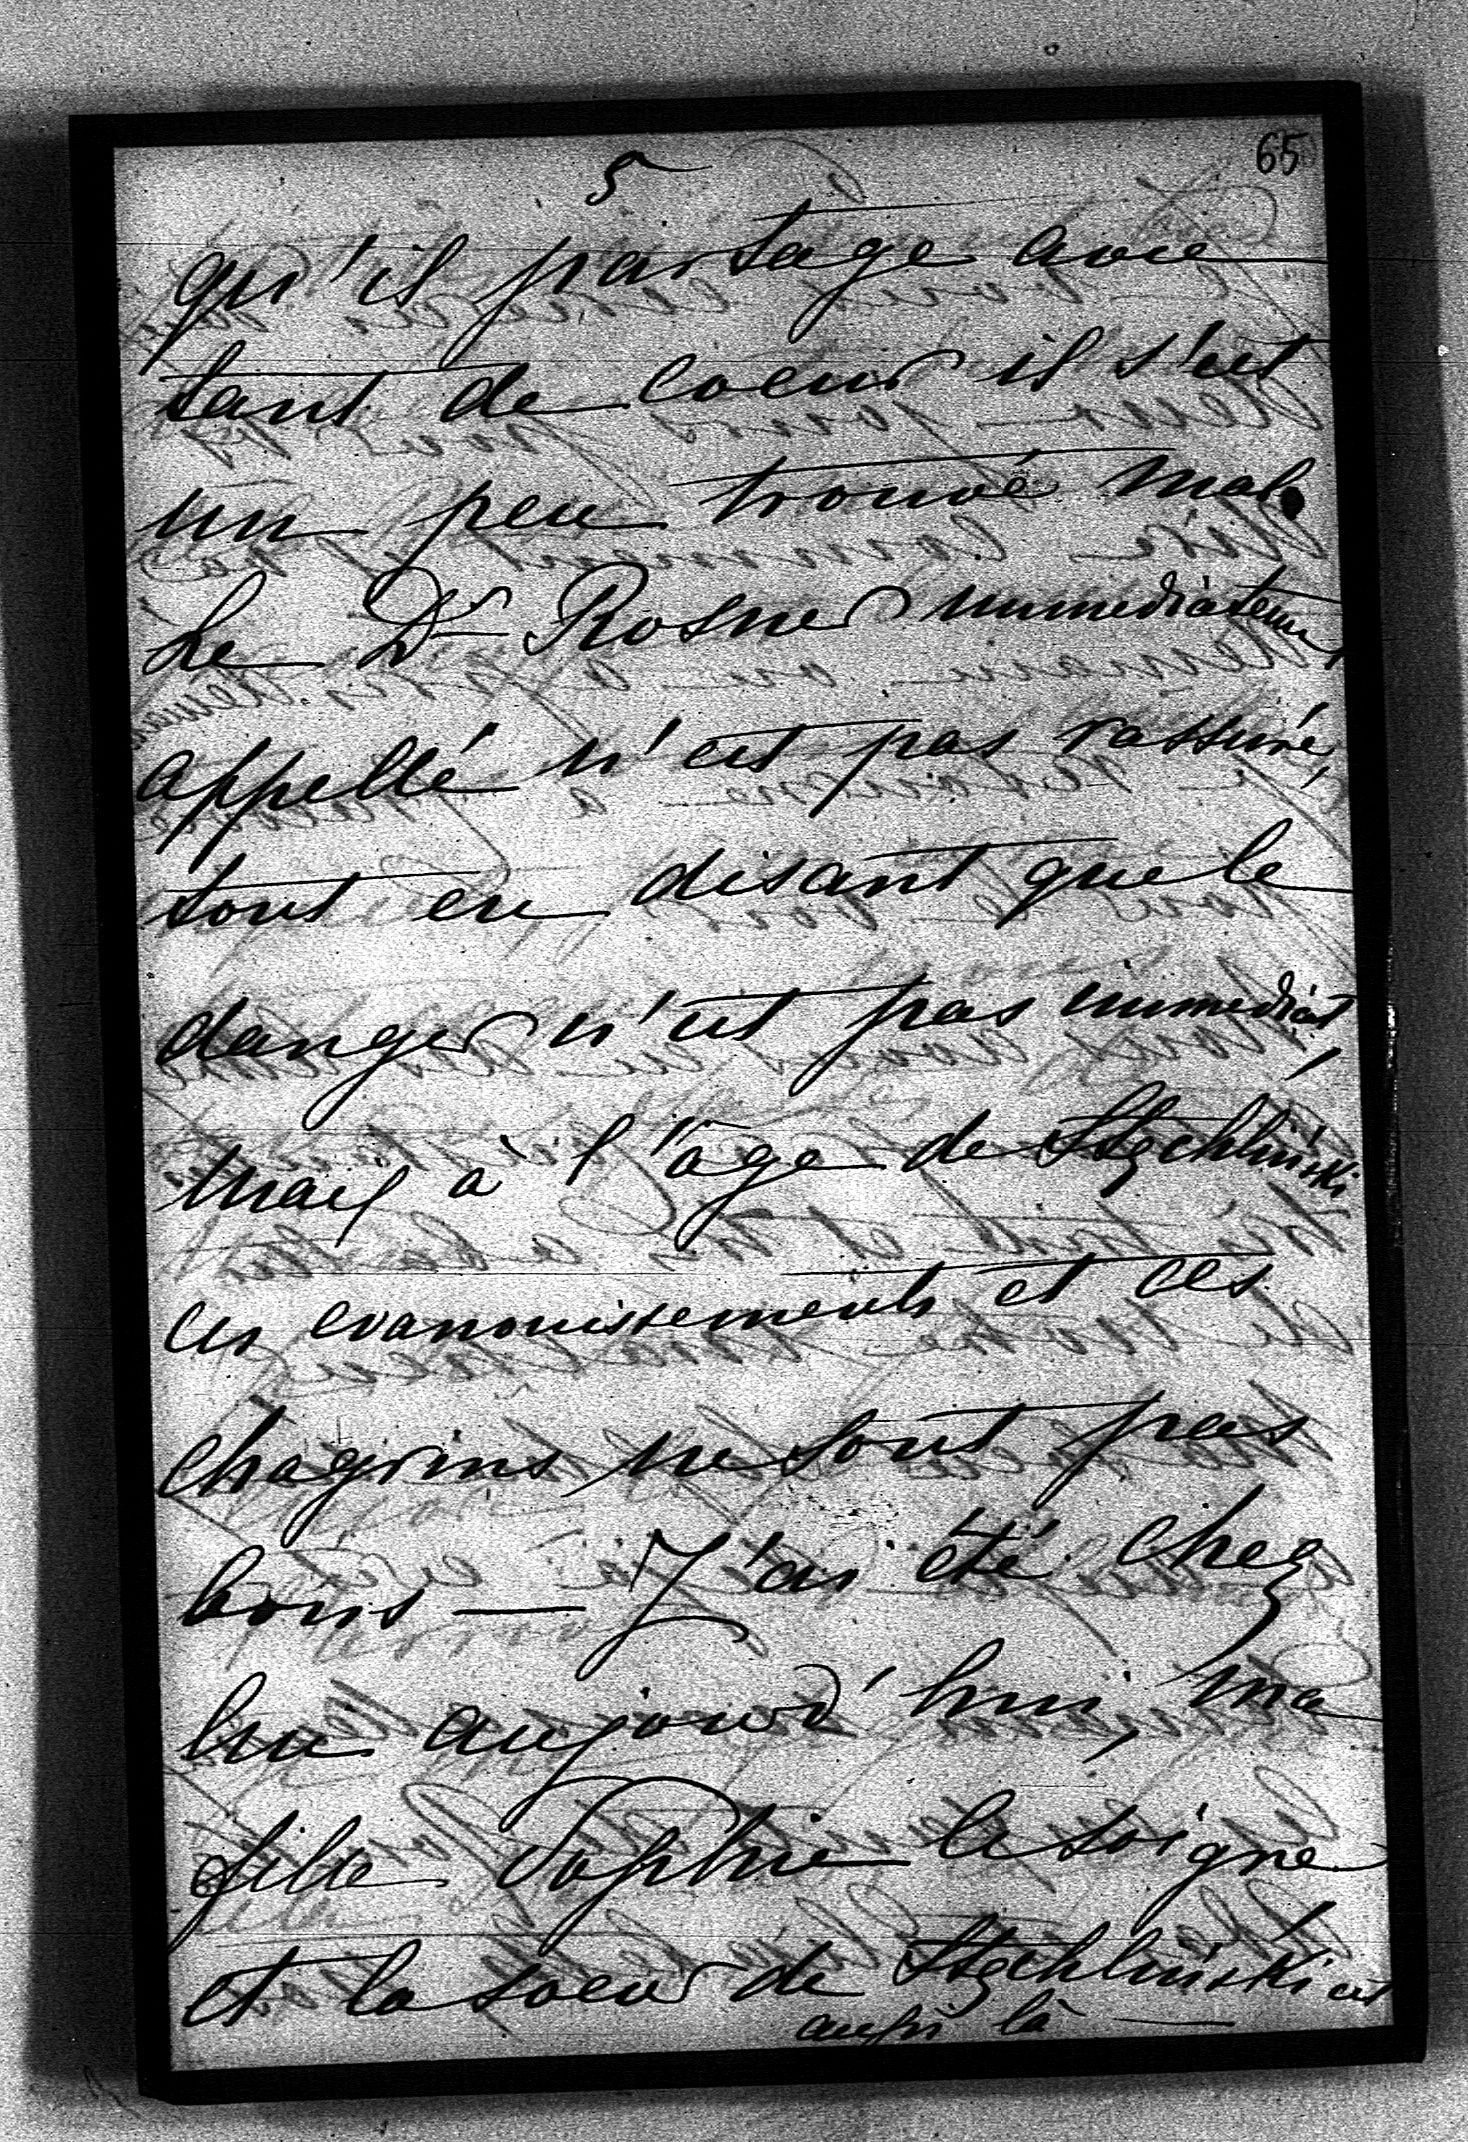 65
5
qu'il partage avec
tant de coeur il s'est
un peu trouvé mal.
Le Dr Rosner immediatem
appellé n'est pas rassuré,
tout en disant que le
danger n'est pas immediat,
mais à l'âge de
ces evanouissements et ces
chagrins ne sont pas
bons — J'ai été chez
lui aujourd'hui, ma
fille Sophie le soigne
et la soeur de est
aussi là —